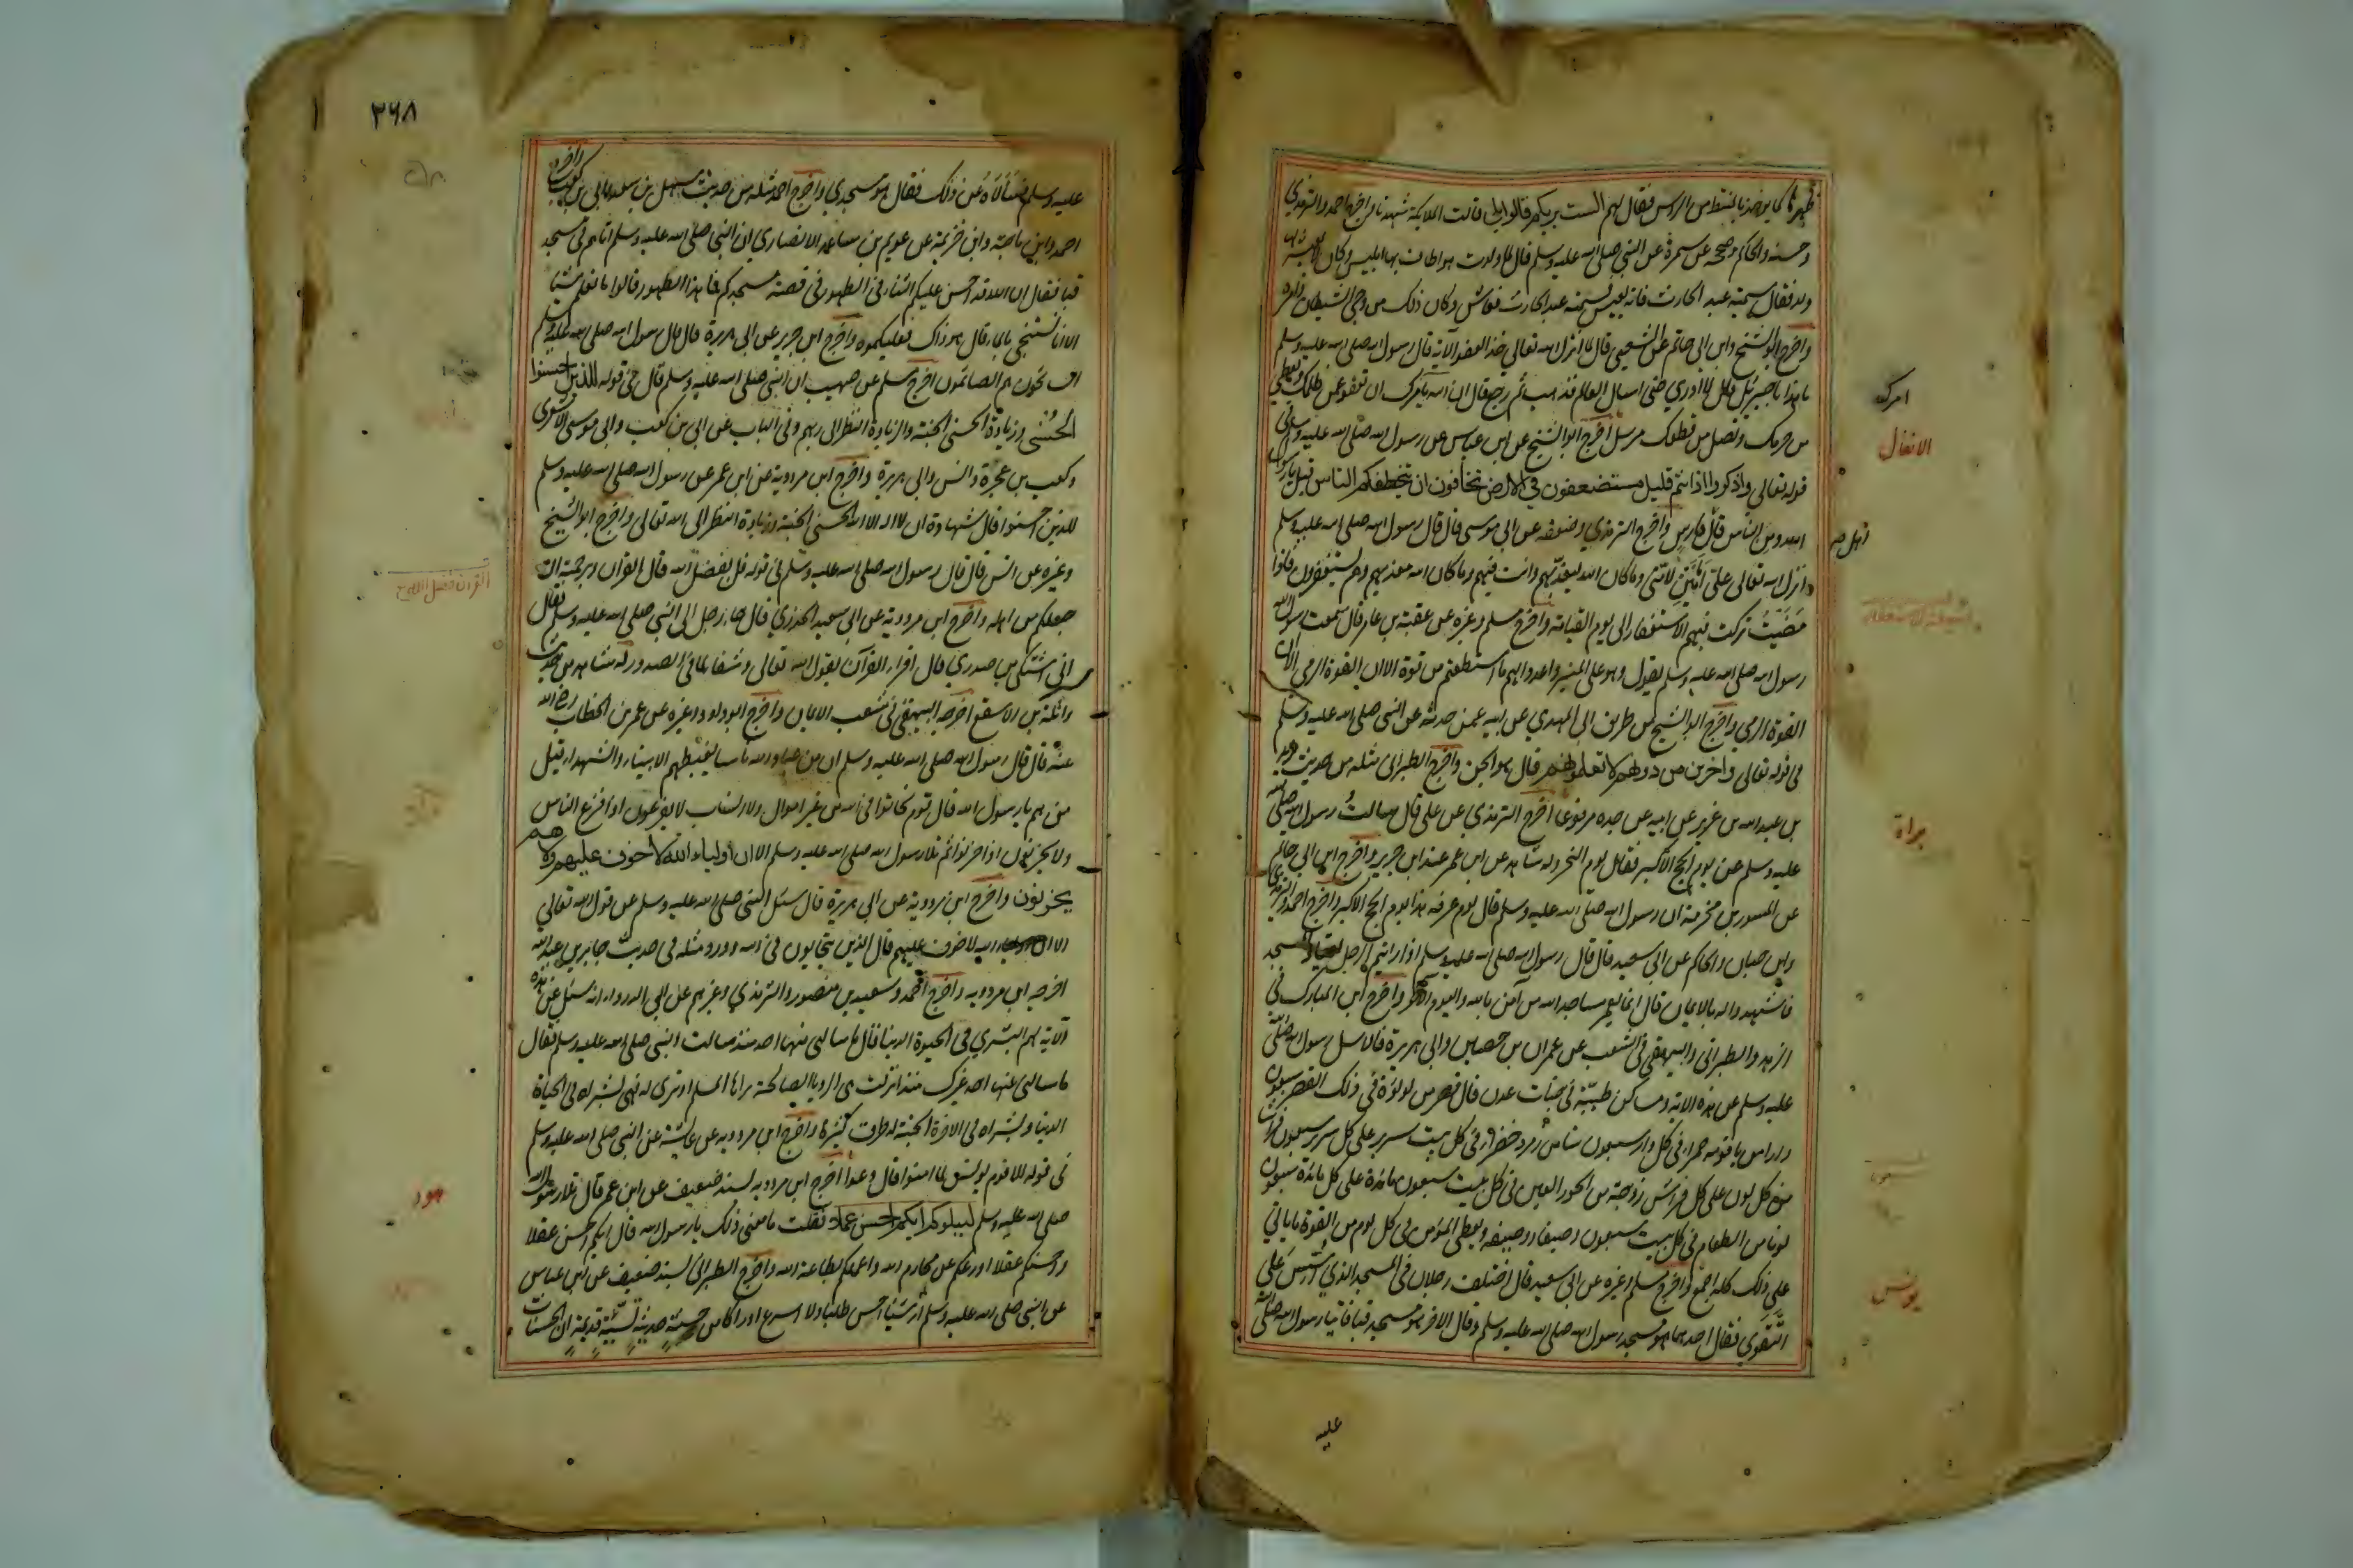 ظهره كما يوخذ بالمشط من الراس فقال لهم الست بربكم قالوا بلى قالت الملايكة شهدنا واخرج احمد والترمذي
وحسنه والحاكم وصححه عن سمرة عن النبي صلى الله عليه وسلم قال لما ولدت حواء طاف بها ابليس وكان لا يعيش لها
ولد فقال سميه عبد الحارث فانه يعيش فسمته عبد الحارث فعاش وكان ذلك من وحي الشيطان وامره
واخرج ابو الشيخ وابن ابي حاتم عن الشعبي قال لما انزل الله تعالى خذ العفو الآية قال رسول الله صلى الله عليه وسلم
ما هذا يا جبرئيل قال لا ادري حتى اسال العالم فذهب ثم رجع قال ان الله يامرك ان تعفو عمن ظلمك وتعطي
امرك
من حرمك وتصل من قطعك مرسل اخرج ابو الشيخ عن ابن عباس عن رسول الله صلى الله عليه وسلم في
الانفال
قوله تعالى واذكروا اذ انتم قليل مستضعفون في الارض تخافون ان يتخطفكم الناس قيل يا رسول
الله ومن الناس قال فارس واخرج الترمذي وضعفه عن ابي موسى قال قال رسول الله صلى الله عليه وسلم
انزل الله تعالى علي امانين لامتي وما كان الله ليعذبهم وانت فيهم وما كان الله معذبهم وهم يستغفرون فاذا
مضيت تركت فيهم الاستغفار الى يوم القيامة واخرج مسلم وغيره عن عقبة بن عامر قال سمعت رسول الله
رسول الله صلى الله عليه وسلم يقول وهو على المنبر واعدوا لهم ما استطعتم من قوة الا ان القوة الرمي الا ان
القوة الرمي واخرج ابو الشيخ من طريق ابي المهدي عن ابيه عمن حدثه عن النبي صلى الله عليه وسلم
في قوله تعالى واخرين من دونهم لا تعلمونهم قال هو الجن واخرج الطبراني مثله من حديث يزيد
بن عبد الله بن غريب عن ابيه عن جده مرفوعا اخرج الترمذي عن علي قال سالت رسول الله صلى الله
براة
عليه وسلم عن يوم الحج الاكبر فقال يوم النحر وله شاهد عن ابن عمر عند ابن جرير واخرج ابن ابي حاتم
عن المسور بن مخرمة ان رسول الله صلى الله عليه وسلم قال يوم عرفة هذا يوم الحج الاكبر واخرج احمد والترمذي
وابن حبان والحاكم عن ابي سعيد قال قال رسول الله صلى الله عليه وسلم اذا رايتم الرجل يعتاد المسجد
فاشهدوا له بالايمان قال انما يعمر مساجد الله من آمن بالله واليوم الآخر واخرج ابن المبارك في
الزهد والطبراني والبيهقي في الشعب عن عمران بن حصين وابي هريرة قالا سئل رسول الله صلى الله
عليه وسلم عن هذه الآية ومساكن طيبة في جنات عدن قال قصر من لولؤة في ذلك القصر سبعون
دارا من ياقوتة حمراء في كل دار سبعون بيتا من زمرد خضراء في كل بيت سرير على كل سرير سبعون فراشا
من كل لون على كل فراش زوجة من الحور العين في كل بيت سبعون مائدة على كل مائدة سبعون
لونا من الطعام في كل بيت سبعون وصيفا ووصيفة ويعطى المؤمن في كل يوم من القوة ما ياتي
على ذلك كله اجمع واخرج مسلم وغيره عن ابي سعيد قال اختلف رجلان في المسجد الذي اسس على
يونس
التقوى فقال احدهما هو مسجد رسول الله صلى الله عليه وسلم وقال الاخر هو مسجد قبا فاتيا رسول الله صلى الله
عليه
٣٦٨
عليه وسلم فسألاه عن ذلك فقال هو مسجدي واخرج احمد مثله من حديث سهل بن سعد وابي بن كعب واخرج
احمد وابن ماجة وابن خزيمة عن عويم بن ساعدة الانصاري ان النبي صلى الله عليه وسلم اتاهم في مسجد
قبا فقال ان الله قد احسن عليكم الثناء في الطهور في قصة مسجدكم فما هذا الطهور قالوا ما نعلم شيئا
الا انا نستنجي بالماء قال هو ذاك فعليكموه واخرج ابن جرير عن ابي هريرة قال قال رسول الله صلى الله عليه وسلم
السائحون هم الصائمون اخرج مسلم عن صهيب ان النبي صلى الله عليه وسلم قال في قوله للذين احسنوا
الحسنى وزيادة الحسنى الجنة والزيادة النظر الى ربهم وفي الباب عن ابي بن كعب وابي موسى الاشعري
وكعب بن عجرة وانس وابي هريرة واخرج ابن مردوية عن ابن عمر عن رسول الله صلى الله عليه وسلم
للذين احسنوا قال شهادة ان لا اله الا الله الحسنى الجنة وزيادة النظر الى الله تعالى واخرج ابو الشيخ
وغيره عن انس قال قال رسول الله صلى الله عليه وسلم في قوله قل بفضل الله قال القرآن وبرحمته ان
جعلكم من اهله واخرج ابن مردوية عن ابي سعيد الخدري قال جاء رجل الى النبي صلى الله عليه وسلم فقال
اني اشتكي من صدري قال اقرء القرآن يقول الله تعالى وشفاء لما في الصدور له شاهد من حديث
واثلة بن الاسقع اخرجه البيهقي في شعب الايمان واخرج ابو داود وغيره عن عمر بن الخطاب رضي الله
عنه قال قال رسول الله صلى الله عليه وسلم ان من عباد الله ناسا يغبطهم الانبياء والشهداء قيل
من هم يا رسول الله قال قوم تحابوا في الله من غير اموال ولا انساب لا يفزعون اذا فزع الناس
ولا يحزنون اذا حزنوا ثم تلا رسول الله صلى الله عليه وسلم الا ان اولياء الله لا خوف عليهم ولا هم
يحزنون واخرج ابن مردوية عن ابي هريرة قال سئل النبي صلى الله عليه وسلم عن قول الله تعالى
الا ان اولياء الله لا خوف عليهم قال الذين يتحابون في الله وورد مثله في حديث جابر بن عبد الله
اخرجه ابن مردويه واخرج احمد وسعيد بن منصور والترمذي وغيرهم عن ابي الدرداء انه سئل عن هذه
الآية لهم البشرى في الحيوة الدنيا قال ما سالني عنها احد منذ سالت النبي صلى الله عليه وسلم فقال
ما سالني عنها احد غيرك منذ انزلت هي الرويا الصالحة يراها المسلم او ترى له فهي بشراه في الحياة
الدنيا وبشراه في الاخرة الجنة له طرق كثيرة واخرج ابن مردويه عن عائشة عن النبي صلى الله عليه وسلم
في قوله الا قوم يونس لما امنوا قال دعوا اخرج ابن مردويه بسند ضعيف عن ابن عمر قال تلا رسول الله
هود
صلى الله عليه وسلم ليبلوكم ايكم احسن عملا فقلت ما معنى ذلك يا رسول الله قال ايكم احسن عقلا
واحسنكم عقلا اورعكم عن محارم الله واعملكم بطاعة الله واخرج الطبراني بسند ضعيف عن ابن عباس
عن النبي صلى الله عليه وسلم لم ار شيئا احسن طلبا ولا اسرع ادراكا من حسنة حديثة لسيئة قديمة ان الحسنات